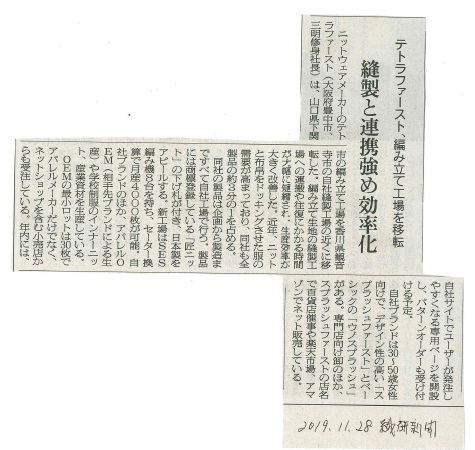 テトラファースト、編み立て工場を移転
縫製と連携強め効率化
ニットウェアメーカーのテト
ラファースト（大阪府豊中市、
三明修身社長）は、山口県下関
市の編み立て工場を香川県観音
寺市の自社縫製工場の近くに移
転した。編み立て生地の縫製工
場への運搬や往復にかかる時間
が大幅に短縮され、生産効率が
大きく改善した。近年、ニット
と布帛をドッキングさせた服の
需要が高まっており、同社も全
製品の約3分の1を占める。
同社の製品は企画から製造ま
ですべて自社工場で行う。製品
には商標登録している「匠ニッ
ト」の下げ札が付き、日本製を
アピールする。新工場はSES
編み機8台を持ち、セーター換
算で月産4000枚が可能。自
社ブランドのほか、アパレルO
EM（相手先ブランドによる生
産）や学校制服のインナーニッ
ト、産業資材を生産している。
OEMの最小ロットは30枚で
アパレルメーカーだけでなく、
ネットショップを含む小売店か
らも受注している。年内には、
自社サイトでユーザーが発注し
やすくなる専用ページを開設
し、パターンオーダーも受け付
ける予定。
自社ブランドは30〜50歳女性
向けで、デザイン性の高い「ス
プラッシュファースト」とベー
シックの「ウノスプラッシュ」
がある。専門店向け卸のほか、
スプラッシュファーストの店名
で百貨店催事や楽天市場、アマ
ゾンでネット販売している。
2019.11.28 繊研新聞